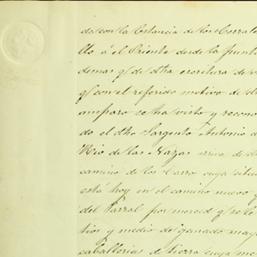 des con la Estancia de los Corrale
llo á el Oriente desde la punta
demas qe. de dha escritura de v
qe. con el referido motivo de el
amparo se ha visto y recono
do el dho Sargento Antonio de
Rio de las Garzas arriva de el
camino de los Carros cuya situa
está hoy en el camino nuevo q
del Parral por merced qe. se le
tios y medio de ganado mayo
caballerias de tierra cuya me